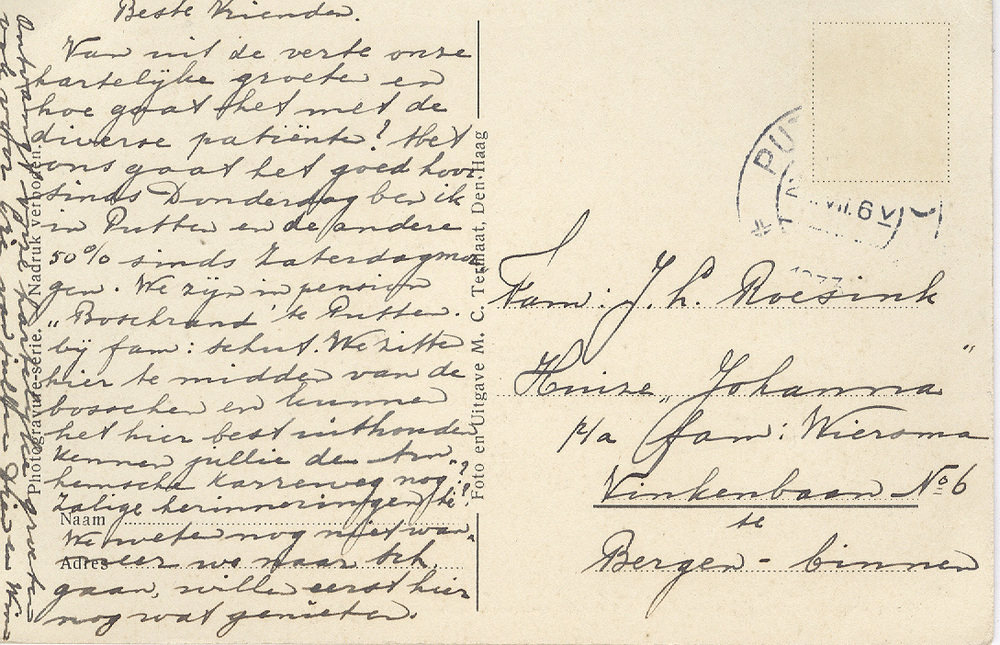 Beste Vrienden.
Van uit de verte onze
hartelijke groeten en
hoe gaat het met de
diverse patiënte? Met
ons gaat het goed hoor
sinds Donderdag ben ik
in Putten en de andere
50% sinds Zaterdagmor
gen. We zijn in pension
„Boschrand" te Putten.
bij fam: Schut. We zitte
hier te midden van de
bosschen en kunnen
het hier best uithouden
kennen jullie de Arn-
hemsche karreweg nog?
Zalige herinneringen hè!?
We weten nog niet wan-
neer we naar Sch.
gaan, wille eerst hier
nog wat genieten.
Ontvangt hartelijke groeten
ook voor
Photogravure-serie. Nadruk verboden.
Naam
Adres
Foto en Uitgave M. C. Termaat, Den Haag
PUT
VII.6 V
Fam: J. h. Roesink
Huize „Johanna"
p/a fam: Wiersma
Vinkenbaan No 6
te
Bergen - binnen